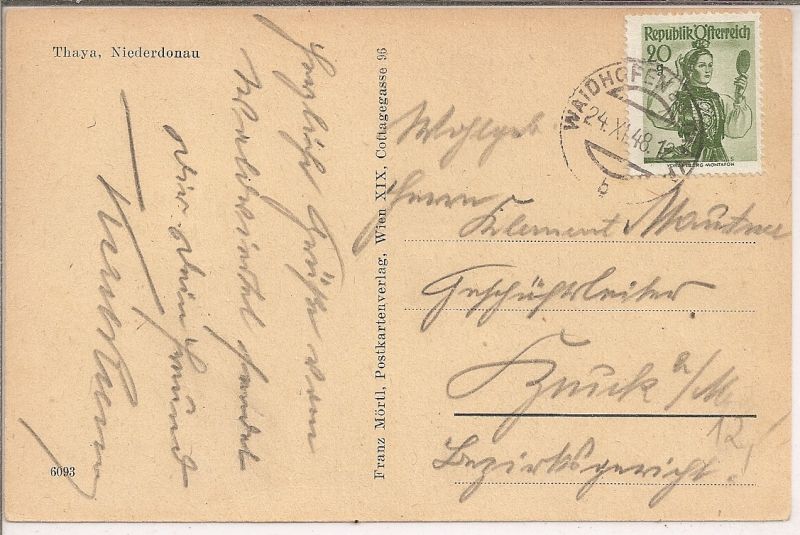 Thaya, Niederdonau
Herzliche Grüße vom
Waldviertel sendet
Dir Dein Freund
6093
Franz Mörtl, Postkartenverlag, Wien XIX, Cottagegasse 96
Republik Österreich
20
g
VORARLBERG MONTAFON
WAIDHOFEN
24.XI.48.12
b
Wohlgeb
Herrn
Klement Mautner
Geschäftsleiter
Bruck a/M
12
Bezirksgericht!